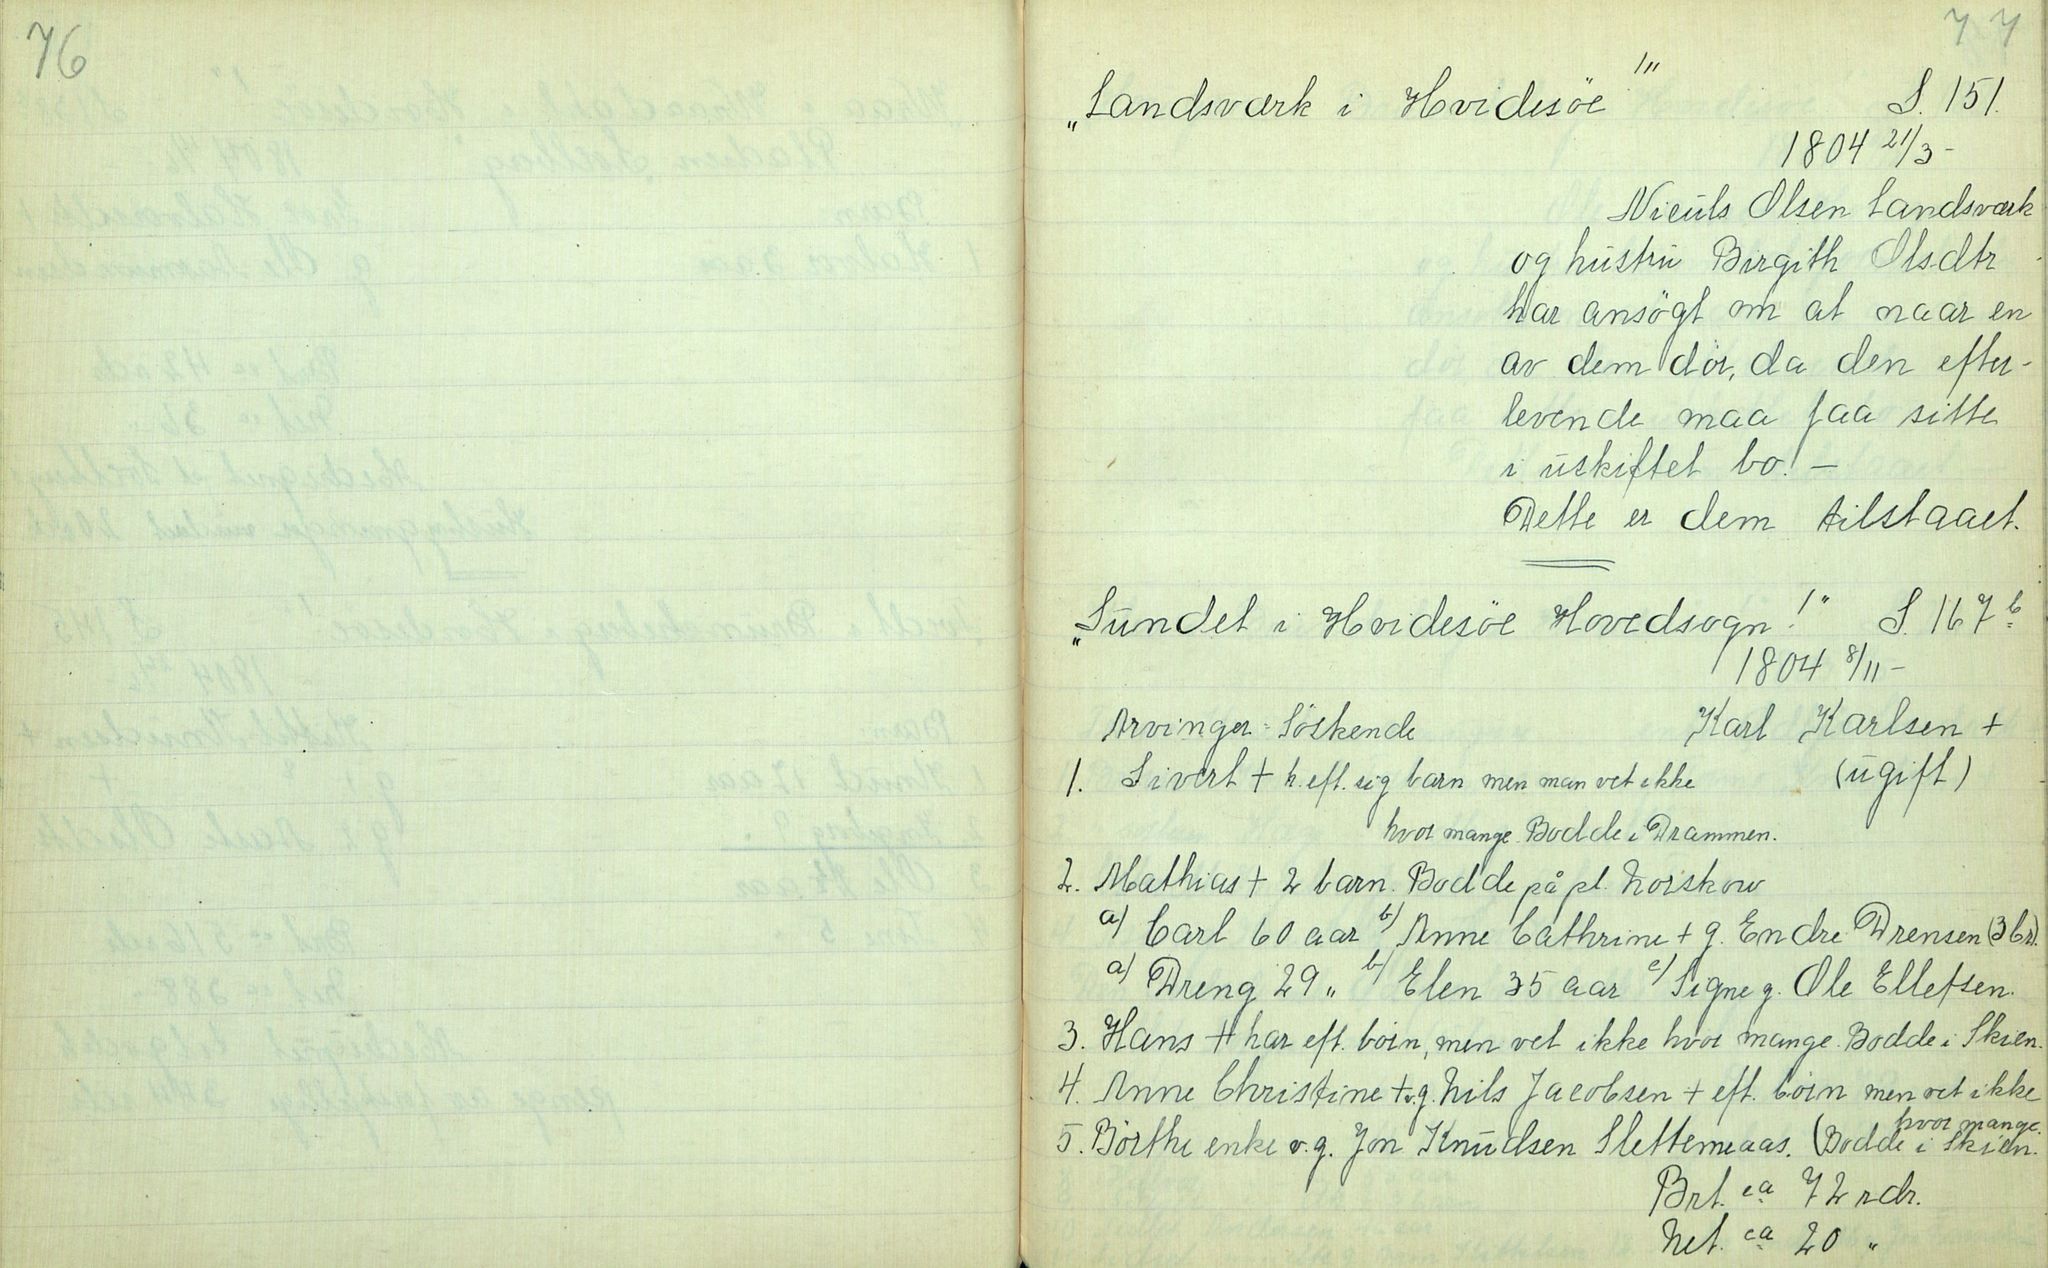 76
77
„Landsværk i Hvidesöe!" S. 151.
1804 21/3 -
Niculs Olsen Landsværk
og hustru Birgith Olsdtr
har ansögt om at naar en
av dem dör, da den efter-
levende maa faa sitte
i uskiftet bo! -
Dette er dem tilstaaet.
„Sundet i Hvidesöe Hovedsogn!" S. 167b
1804 8/11 -
Arvinger = Söskende Karl Karlsen +
1. Sivert + h. eft. sig barn men man vet ikke (ugift)
hvor mange. Bodde i Drammen.
2. Mathias + 2 barn. Bodde på pl. Norskow
a) Carl 60 aar b) Anne Cathrine + g. Endre Drensen (3 br).
a) Dreng 29 „ b) Elen 35 aar c) Signe g. Ole Ellefsen.
3. Hans + har eft. börn, men vet ikke hvor mange. Bodde i Skien.
4. Anne Christine + v.g. Nils Jacobsen + eft. börn men vet ikke
hvor mange.
5. Börthe enke v.g. Jon Knudsen Slettemeaas. (Bodde i Skien.
Brt. ca 72 rdr.
Net. ca 20 „